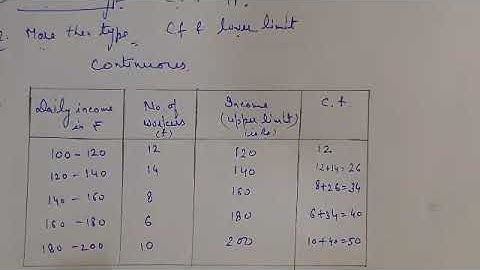 2. More then type Cf & lower limit
Continuous
Daily income in ₹ | No of workers (f) | Income (upper limit) | C.f
100-120 | 12 | 120 | 12
120-140 | 14 | 140 | 12+14=26
140-160 | 8 | 160 | 8+26=34
160-180 | 6 | 180 | 6+34=40
180-200 | 10 | 200 | 10+40=50